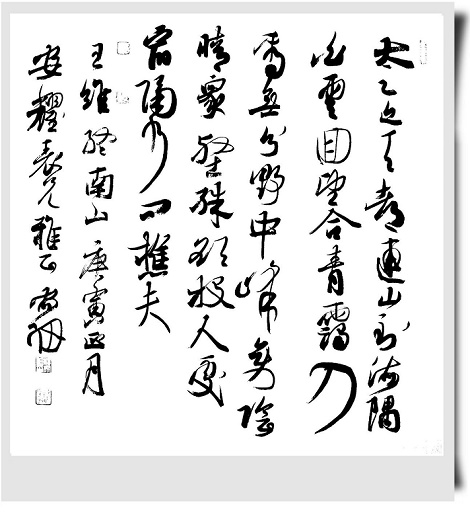 太乙近天都連山到海隅
白雲回望合青靄入
看無分野中峰變陰
晴眾壑殊欲投人處
宿隔水問樵夫
王維終南山 庚寅正月
安耀表兄雅正